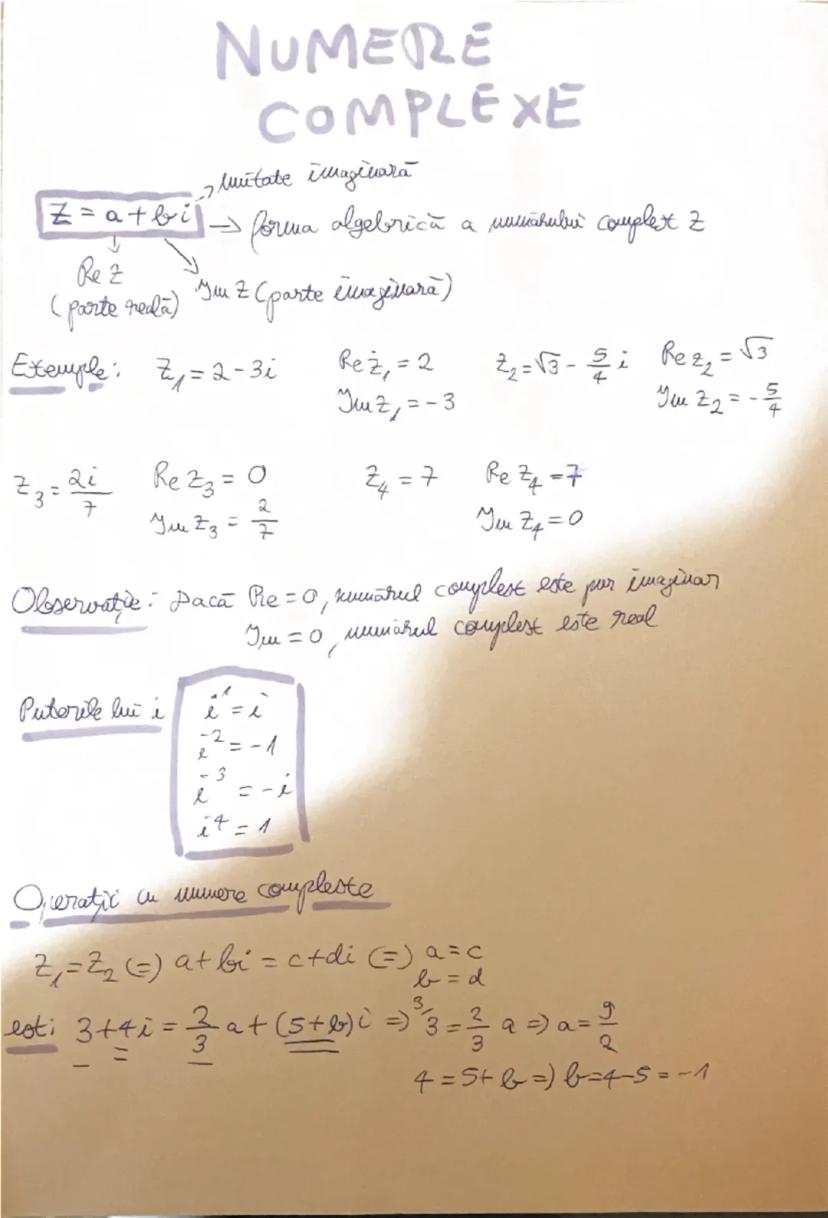 NUMERE
COMPLEXE
unitate imaginară
Z = a + bi → forma algebrică a numărului complex Z
Re Z
(parte reală)
Im Z (parte imaginară)
Exemple: Z₁ = 2 - 3i Re z₁ = 2 Z₂ = √3 - 5/4 i Re z₂ = √3
Im z₁ = -3 Im z₂ = -5/4
Z₃ = 2i/7 Re Z₃ = 0 Z₄ = 7 Re Z₄ = 7
Im Z₃ = 2/7 Im Z₄ = 0
Observație: Dacă Re = 0, numărul complex este pur imaginar
Im = 0, numărul complex este real
Puterile lui i
i¹ = i
i² = -1
i³ = -i
i⁴ = 1
Operații cu numere complexe
Z₁ = Z₂ (=) a + bi = c + di (=) a = c
b = d
3 + 4i = 2/3 a + (5 + b)i => ³⁄3 = 2/3 a => a = 9/2
4 = 5 + b => b = 4 - 5 = -1